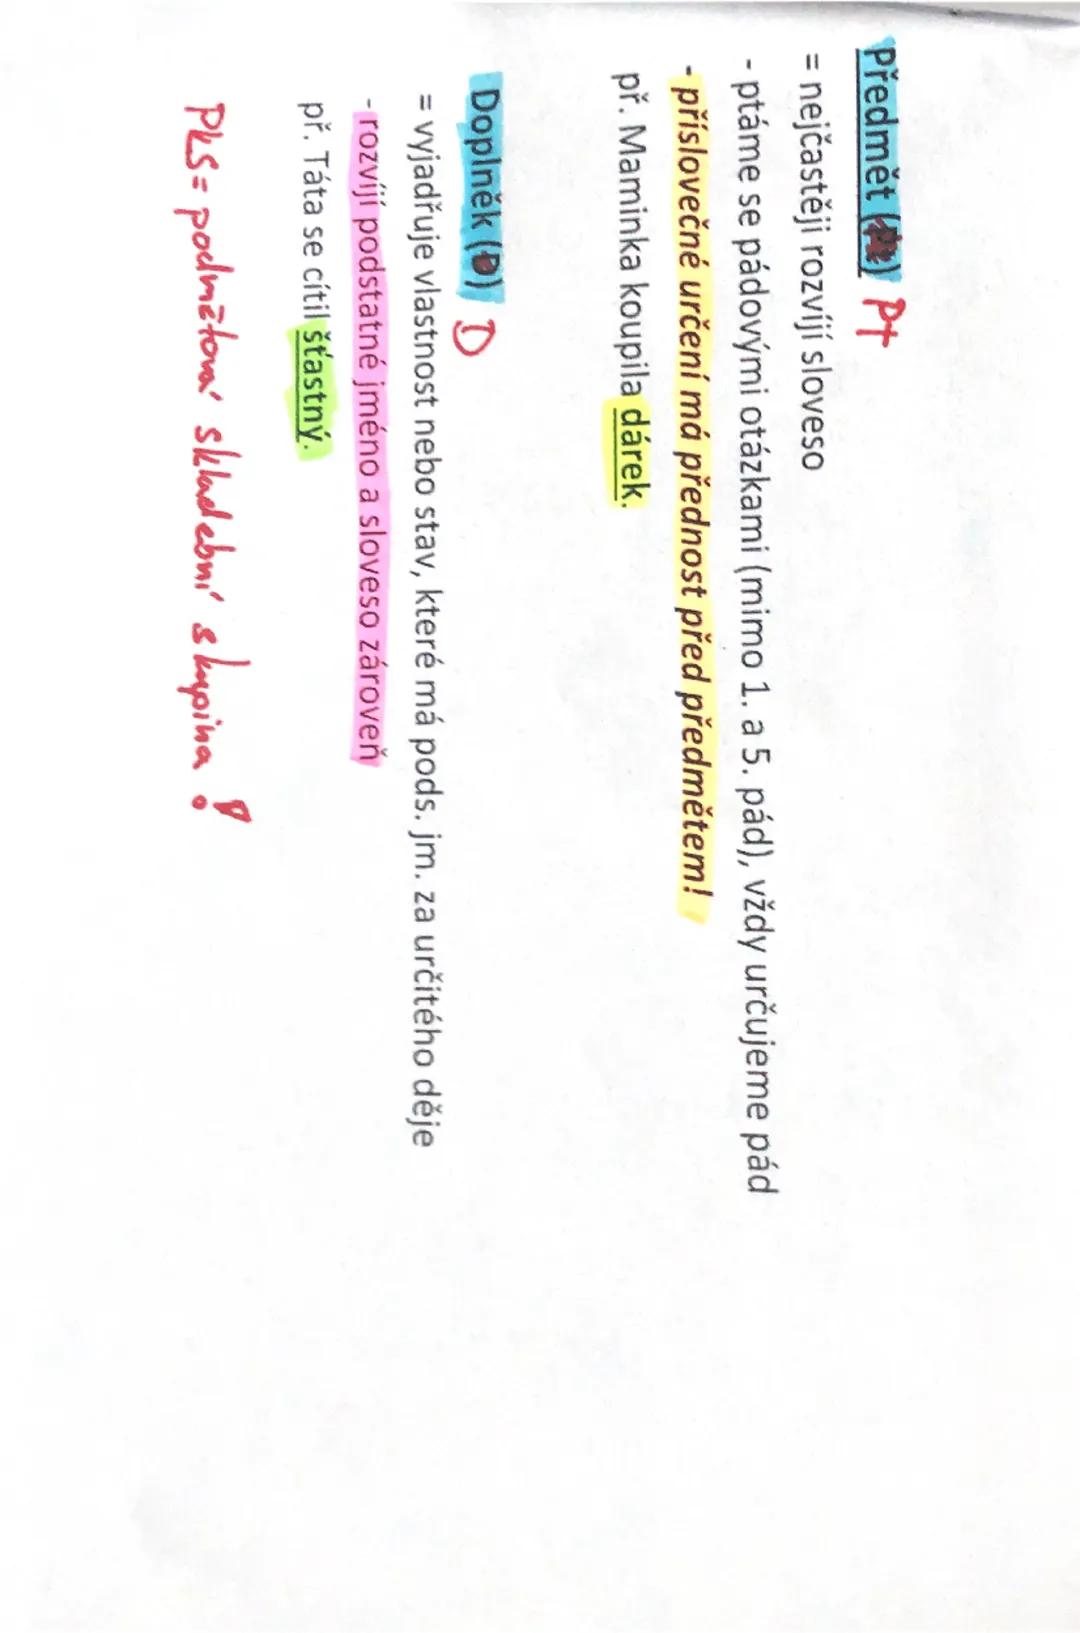 Předmět (Pt) Pt
= nejčastěji rozvíjí sloveso
- ptáme se pádovými otázkami (mimo 1. a 5. pád), vždy určujeme pád
- příslovečné určení má přednost před předmětem!
př. Maminka koupila dárek.
Doplněk (D) D
= vyjadřuje vlastnost nebo stav, které má pods. jm. za určitého děje
- rozvíjí podstatné jméno a sloveso zároveň
př. Táta se cítil šťastný.
PkS = podmětová skladební skupina!